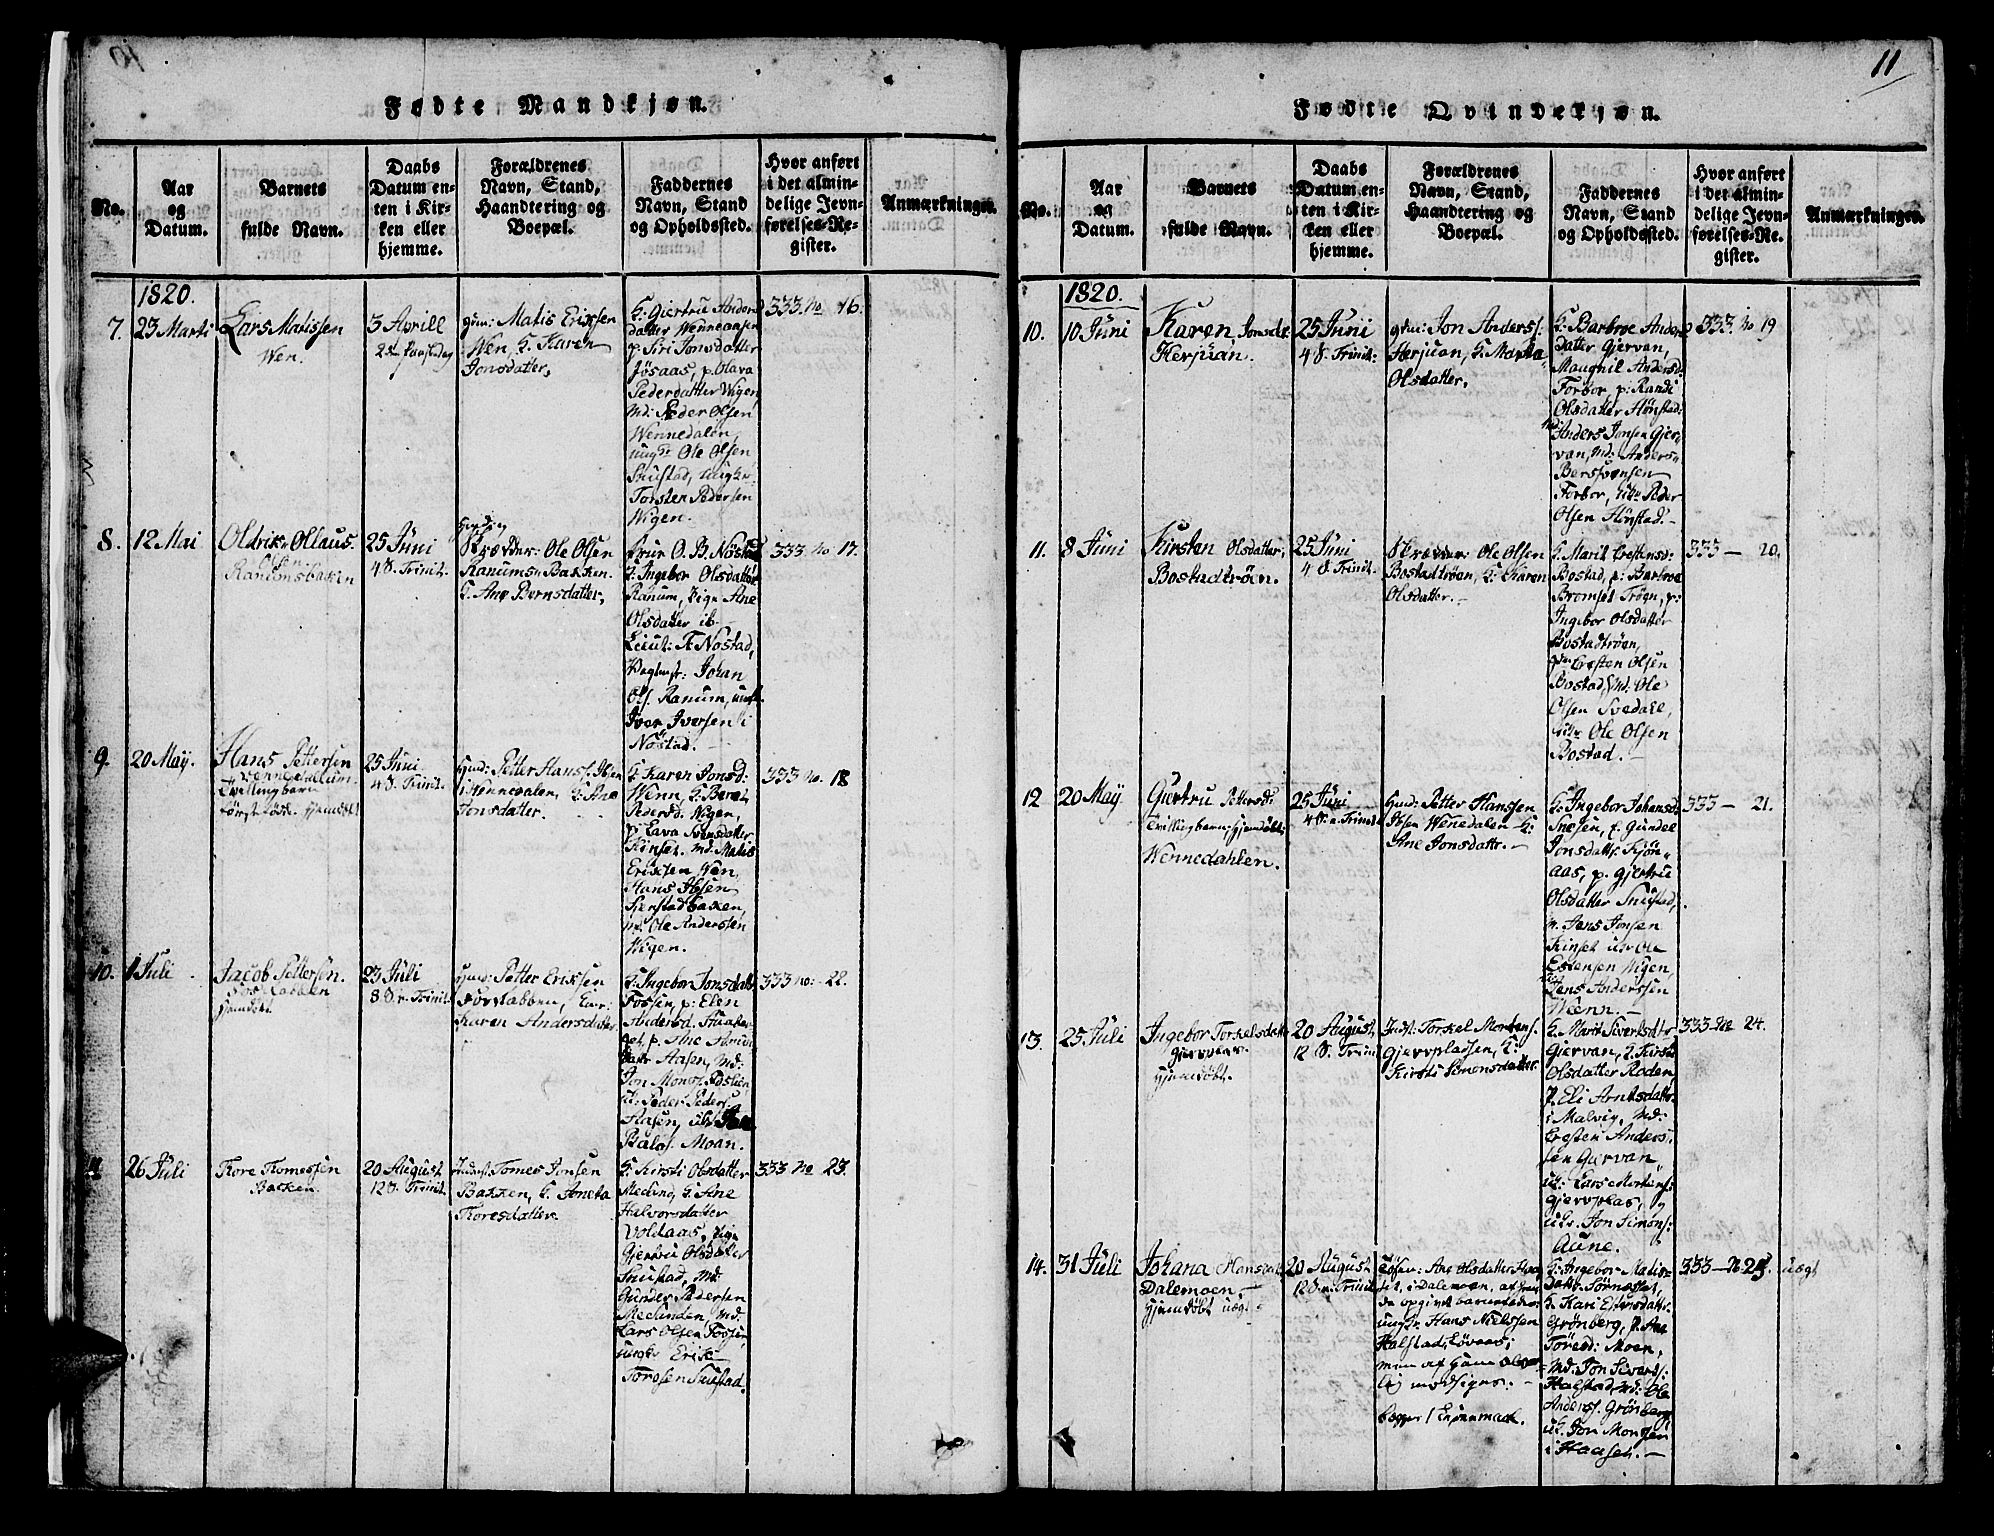 10
Fødte Mandkjøn.
No.
Aar
og
Datum.
Barnets
fulde Navn.
Daabs
Datum en-
ten i Kir-
ken eller
hjemme.
Forældrenes
Navn, Stand,
Haandtering og
Boepæl.
Faddernes
Navn, Stand
og Opholdssted.
Hvor anført
i det almin-
delige Jevn-
førelses-Re-
gister.
Anmærkninger.
1820.
7.
23 Marti
Lars Matissen
Wen.
3 Aprill
gm: Matis Eriksen
Wen, K. Karen
Jonsdatter,
K: Giertru Anders
datter Wennaasen
p. Siri Jonsdatter
Jøsaas, p. Olava
Pedersdatter Wigen
Md: Peder Olsen
Wennedalen,
Ole Olsen
Snustad,
Torsten Pedersen
Wigen.
333 No 16.
8.
12 Mai
Oldrik Ollaus
Olsen
Ranumsbakken
25 Juni
4 S. Trinit.
Skrædder: Ole Olsen
Ranums Bakken.
K. Ane Bernsdatter,
Frue O. B. Nøstad
K. Ingebor Olsdatter
Ranum, Pige Ane
Olsdatter ib.
Lieut: F. Nøstad,
Johan
Ols. Ranum,
Iver Iversen i
Nøstad.
333 No 17.
9.
20 May.
Hans Pettersen
Wennedallum.
Tvillingbarn
første føds. Hjemdøbt
25 Juni
4 S. Trinit.
Huusd: Petter Hans. Ibsen
i Wennedalen, K. Ane
Jonsdatter.
K. Karen Jonsd:
Wenn, K. Beret
Pedersd. Wigen,
p. Lava Svensdatter
Kinset. Md. Matis
Eriksen Wen,
Hans Ibsen
Stenstadbakken,
Md. Ole Anderssen
Wigen.
333 no. 18
10.
1 Juli
Jacob Pettersen.
Forstabben
Hjemdøbt
23 Juli
8 S. Trinit.
Huusd: Petter Eriksen
Forstabben,
Karen Andersdatter
K. Ingebor Jonsdatter
Fossen, p: Elen
Andersd.
p. Ane
Aasen, Md:
Jon Mons.
Peder Peders:
Aasen,
Moan.
333 no: 22.
11
26 Juli
Tore Thomessen
Bakken.
20 August
12 S. Trinit.
Tomes Jonsen
Bakken, K. Joneta
Thoresdatter
K: Kirsti Olsdatter
Meeling K. Ane
Halvorsdatter
Voldaas, Pige
Gjertru Olsdatter
Snustad, Md:
Gunder Pedersen
Meelinden, Md.
Lars Olsen Fossen,
Erik
Toresen Snustad.
333 No 23.
11
Fødte Qvindekjøn.
No.
Aar
og
Datum.
Barnets
fulde Navn.
Daabs
Datum en-
ten i Kir-
ken eller
hjemme.
Forældrenes
Navn, Stand,
Haandtering og
Boepæl.
Faddernes
Navn, Stand
og Opholdssted.
Hvor anført
i det almin-
delige Jevn-
førelses-Re-
gister.
Anmærkninger.
1820.
10.
10 Juni
Karen Jonsdt.
Herjuan.
25 Junii
4 S. Trinit:
gm: Jon Anders:
Herjuan, K. Marta
Olsdatter.
K: Barbroe Anders
datter Gjervan,
Maugnil Andersd:
Forbor, p: Randi
Olsdatter Hønstad:
Md: Anders Jonsen Gjer-
van, Md: Anders
Bersvensen
Forbor, Peder
Olsen Hønstad.-
333 No 19
11.
8 Juni
Kirsten Olsdatter,
Bostadtrøen.
25 Juni
4 S. Trinit.
Skrædder: Ole Olsen
Bostadtrøen, K: Karen
Olsdatter.-
K: Marit Erstensd:
Bostad, p: Barbroe
Bromset Trøgn, p:
Ingebor Olsdatter
Bostadtrøen,
Ersten Olsen
Bostad, Md. Ole
Olsen Svedale,
Ole Olsen
Bostad.-
333 - 20.
12
20 May
Giertru Pettersd:
Tvillingbarn hjemdøbt:
Wennedahlen.
25 Juni
4 S. Trinit
Huusd: Petter Hanssen
Ibsen Wenedalen K:
Ane Jonsdattr.-
K: Ingebor Johansd:
Snesen, p. Gundel
Jonsdattr. Kjøn-
aas, p. Gjertru
Olsdatter Snustad,
Jens Jonsen
Kinset Ole
Estensen Wigen
Jens Anderssen
Wenn.-
333 - 21.
13.
25 Juli
Ingebor Torkelsdatter
Gjervplas.
Hjemdøbt.
20 August
12 S. Trinit
Torkel Mortens.
Gjervpladsen, K:
Kirsti Simonsdatter.
K. Marit Sivertsdtr
Giervan, K. Kirsti
Olsdatter Roden,
p. Eli Arntsdattr.
i Malvig, Md:
Ersten Anders-
sen Giervan
Lars Mortens:
Gjervplas,
Jon Simons:
Aune.
333 No 24.
14.
31 Juli
Johana Hansdat.
Dalemoen.-
Hjemdøbt uægt
20 August
12 S. Trinit
Tøsen: Ane Olsdatter
i Dalemoen,
opgivet barnefader:
ungkr. Hans Nielssen
Halstad Løvaas;
K: Ingebor Matis-
datter Sørnesset,
K: Kari Estensdatter
Grønberg, p. Ane
Toresd: Moen,
Md: Jon Siverds:
Halstad, Md: Ole
Anders. Grønberg,
Jon Monsen
i Haaset.-
333 - No 25.
uægt